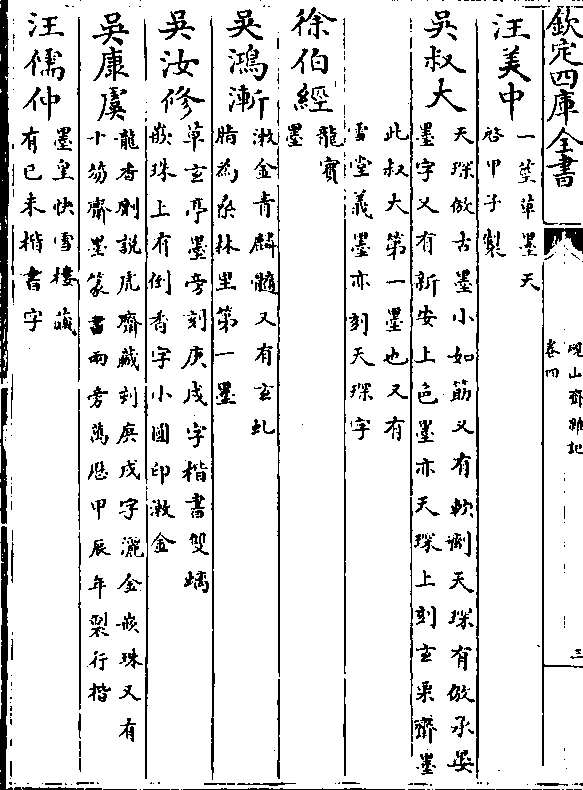 欽定四庫全書
硯山齋雜記
卷四
三
汪美中
一莖草墨天
啓甲子製
吳叔大
天琛倣古墨小如筋又有軟劑天琛有倣承晏
墨字又有新安上色墨亦天琛上刻玄栗齋墨
此叔大第一墨也又有
雪堂義墨亦刻天琛字
徐伯經
龍賓
墨
吳鴻漸
漱金青麟髓又有玄虬
脂為桑林里第一墨
吳汝修
草玄亭墨旁刻庚戌字楷書雙螭
嵌珠上有倒香字小圓印漱金
吳康虞
龍香劑說虎齋藏刻庚戌字灑金嵌珠又有
十笏齋墨篆書兩旁萬厯甲辰年製行楷
汪儒仲
墨皇快雪樓藏
有已未楷書字